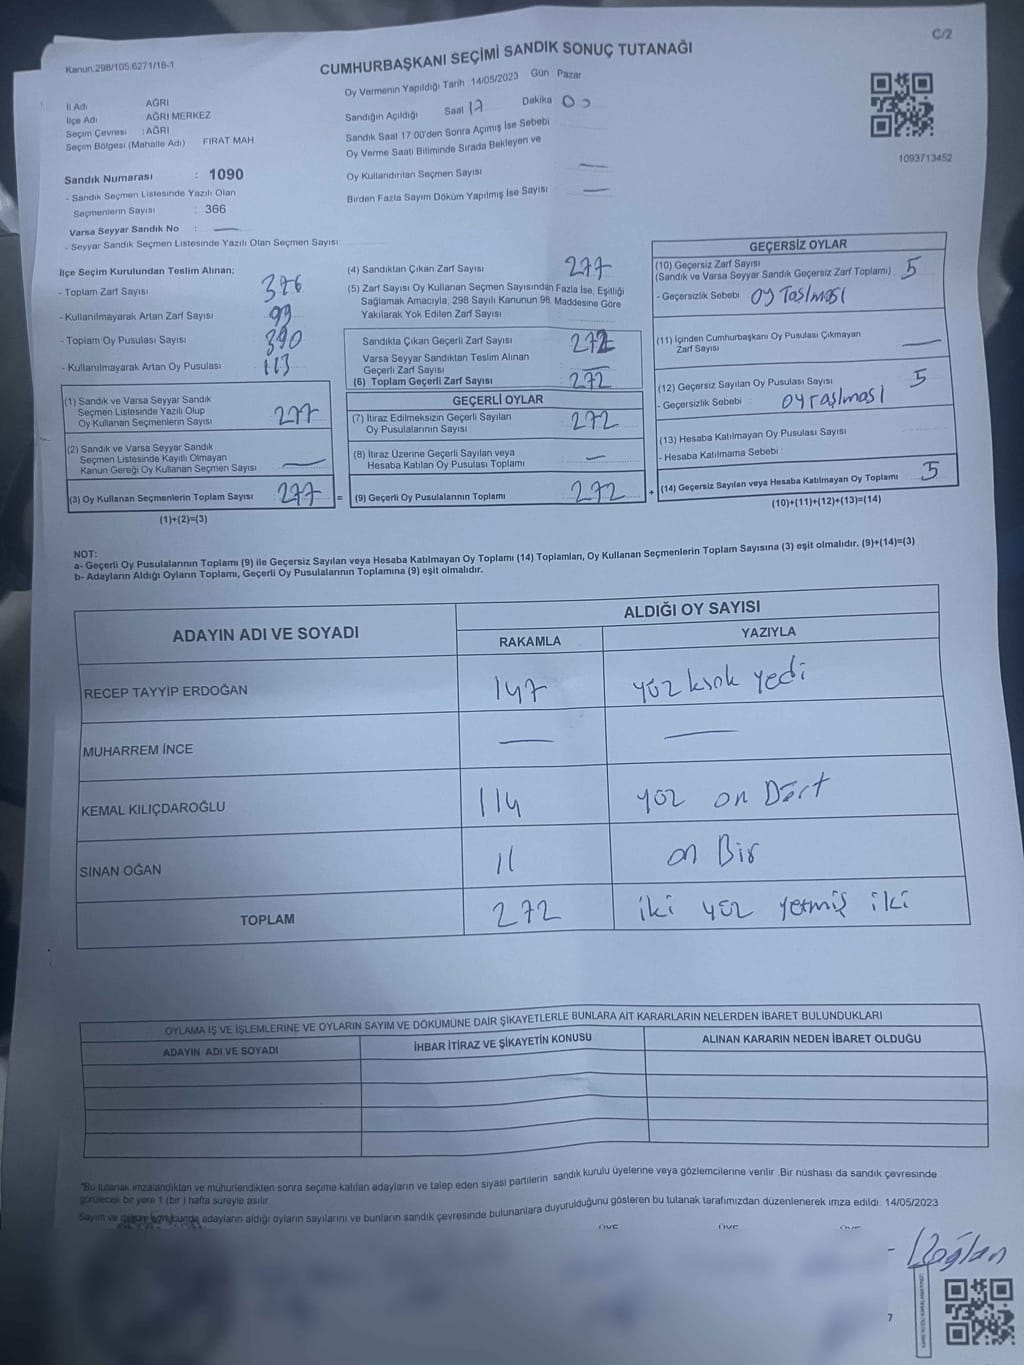 C/2
Kanun.298/105.6271/18-1
CUMHURBAŞKANI SEÇİMİ SANDIK SONUÇ TUTANAĞI
Oy Vermenin Yapıldığı Tarih 14/05/2023 Gün Pazar
İl Adı AĞRI
İlçe Adı AĞRI MERKEZ
Seçim Çevresi : AĞRI
Seçim Bölgesi (Mahalle Adı) FIRAT MAH
Sandığın Açıldığı Saat 17 Dakika 00
Sandık Saat 17.00'den Sonra Açılmış İse Sebebi
Oy Verme Saati Bitiminde Sırada Bekleyen ve
Oy Kullandırılan Seçmen Sayısı —
Birden Fazla Sayım Döküm Yapılmış İse Sayısı —
1093713452
Sandık Numarası : 1090
- Sandık Seçmen Listesinde Yazılı Olan
Seçmenlerin Sayısı : 366
Varsa Seyyar Sandık No : —
- Seyyar Sandık Seçmen Listesinde Yazılı Olan Seçmen Sayısı:
İlçe Seçim Kurulundan Teslim Alınan;
- Toplam Zarf Sayısı 376
- Kullanılmayarak Artan Zarf Sayısı 99
- Toplam Oy Pusulası Sayısı 390
- Kullanılmayarak Artan Oy Pusulası 113
(1) Sandık ve Varsa Seyyar Sandık
Seçmen Listesinde Yazılı Olup
Oy Kullanan Seçmenlerin Sayısı 277
(2) Sandık ve Varsa Seyyar Sandık
Seçmen Listesinde Kayıtlı Olmayan
Kanun Gereği Oy Kullanan Seçmen Sayısı —
(3) Oy Kullanan Seçmenlerin Toplam Sayısı 277 =
(1)+(2)=(3)
(4) Sandıktan Çıkan Zarf Sayısı 277
(5) Zarf Sayısı Oy Kullanan Seçmen Sayısından Fazla İse, Eşitliği
Sağlamak Amacıyla, 298 Sayılı Kanunun 98. Maddesine Göre
Yakılarak Yok Edilen Zarf Sayısı
Sandıkta Çıkan Geçerli Zarf Sayısı 272
Varsa Seyyar Sandıktan Teslim Alınan
Geçerli Zarf Sayısı —
(6) Toplam Geçerli Zarf Sayısı 272
GEÇERLİ OYLAR
(7) İtiraz Edilmeksizin Geçerli Sayılan
Oy Pusulalarının Sayısı 272
(8) İtiraz Üzerine Geçerli Sayılan veya
Hesaba Katılan Oy Pusulası Toplamı —
(9) Geçerli Oy Pusulalarının Toplamı 272 +
GEÇERSİZ OYLAR
(10) Geçersiz Zarf Sayısı
(Sandık ve Varsa Seyyar Sandık Geçersiz Zarf Toplamı) 5
- Geçersizlik Sebebi oy Taşması
(11) İçinden Cumhurbaşkanı Oy Pusulası Çıkmayan
Zarf Sayısı —
(12) Geçersiz Sayılan Oy Pusulası Sayısı 5
- Geçersizlik Sebebi : oy taşması
(13) Hesaba Katılmayan Oy Pusulası Sayısı
- Hesaba Katılmama Sebebi :
(14) Geçersiz Sayılan veya Hesaba Katılmayan Oy Toplamı 5
(10)+(11)+(12)+(13)=(14)
NOT:
a- Geçerli Oy Pusulalarının Toplamı (9) ile Geçersiz Sayılan veya Hesaba Katılmayan Oy Toplamı (14) Toplamları, Oy Kullanan Seçmenlerin Toplam Sayısına (3) eşit olmalıdır. (9)+(14)=(3)
b- Adayların Aldığı Oyların Toplamı, Geçerli Oy Pusulalarının Toplamına (9) eşit olmalıdır.
ADAYIN ADI VE SOYADI ALDIĞI OY SAYISI
RAKAMLA YAZIYLA
RECEP TAYYİP ERDOĞAN 147 yüz kırk yedi
MUHARREM İNCE — —
KEMAL KILIÇDAROĞLU 114 yüz on Dört
SİNAN OĞAN 11 on Bir
TOPLAM 272 iki yüz yetmiş iki
OYLAMA İŞ VE İŞLEMLERİNE VE OYLARIN SAYIM VE DÖKÜMÜNE DAİR ŞİKAYETLERLE BUNLARA AİT KARARLARIN NELERDEN İBARET BULUNDUKLARI
ADAYIN ADI VE SOYADI İHBAR İTİRAZ VE ŞİKAYETİN KONUSU ALINAN KARARIN NEDEN İBARET OLDUĞU
"Bu tutanak imzalandıktan ve mühürlendikten sonra seçime katılan adayların ve talep eden siyasi partilerin sandık kurulu üyelerine veya gözlemcilerine verilir. Bir nüshası da sandık çevresinde
görülecek bir yere 1 (bir) hafta süreyle asılır.
Sayım ve döküm sonucunda adayların aldığı oyların sayılarını ve bunların sandık çevresinde bulunanlara duyurulduğunu gösteren bu tutanak tarafımızdan düzenlenerek imza edildi. 14/05/2023
ÜYE ÜYE ÜYE
7